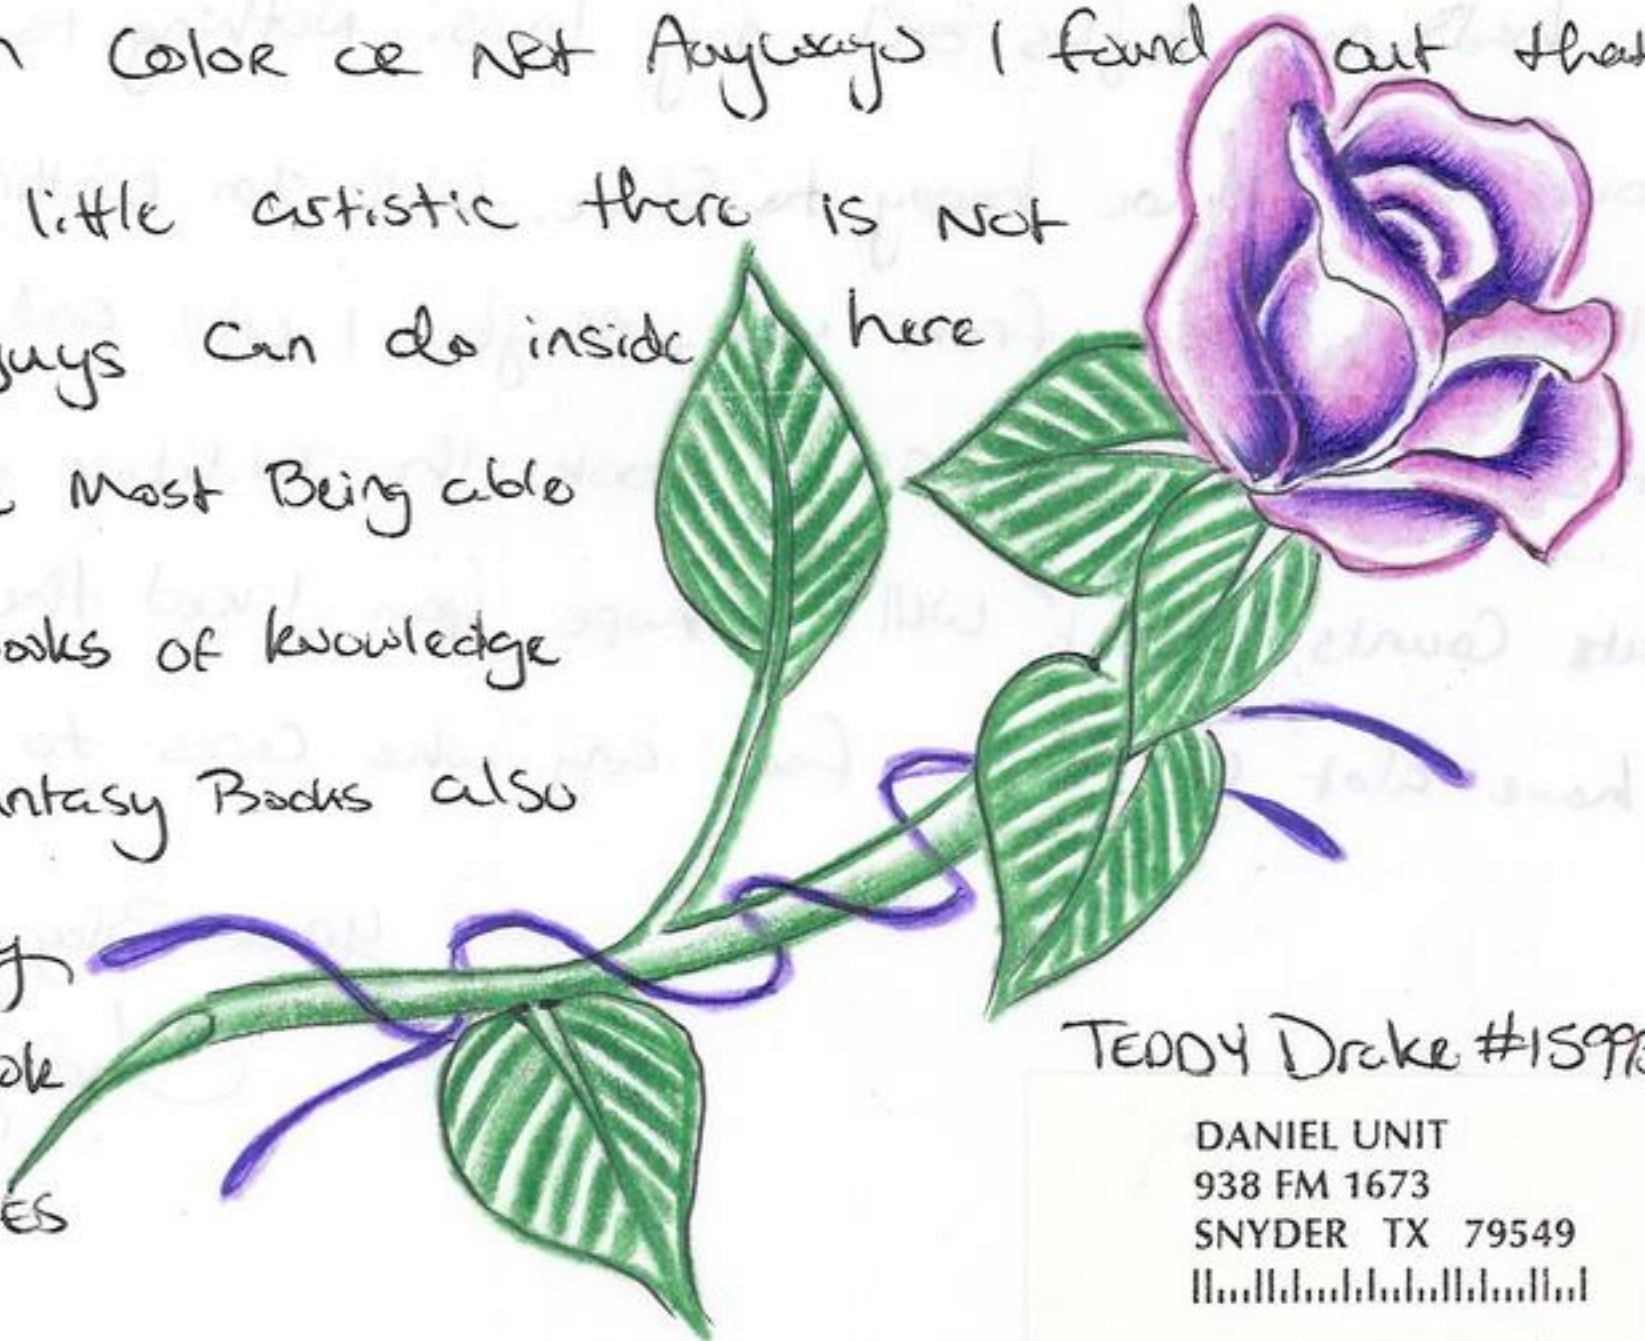 Color or Not Anyways I found out that
little artistic there is Not
guys can do inside here
Most Being able
ooks of knowledge
antasy Books also
y
ok
TEDDY Drake #15993
DANIEL UNIT
938 FM 1673
SNYDER TX 79549
ES